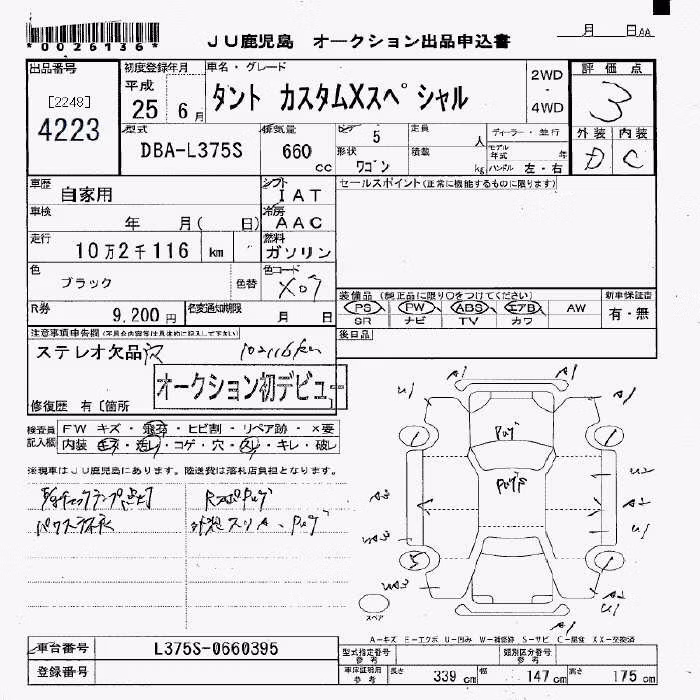 *0026136*
JU鹿児島 オークション出品申込書
月 日AA
出品番号
[2248]
4223
初度登録年月
平成
25 6月
車名・グレード
タント カスタムXスペシャル
2WD
-
4WD
評価点
3
外装 内装
D C
型式
DBA-L375S
排気量
660 cc
ドア 5
形状 ワゴン
定員 人
積載 kg
ディーラー・並行
モデル年式 年
ハンドル 左・右
車歴
自家用
シフト
IAT
セールスポイント(正常に機能するものに限ります)
車検
年 月( 日)
冷房
AAC
走行
10万2千116 km
燃料
ガソリン
色
ブラック
色替
色コード
X07
R券
9,200円
名変通知期限
月 日
装備品 (純正品に限り○をつけてください)
PS PW ABS エアB AW
SR ナビ TV カワ
新車保証書
有・無
後日品
注意事項申告欄(不具合内容等は具体的に記入して下さい)
ステレオ欠品穴
102116km
オークション初デビュー
修復歴 有〔箇所
検査員
記入欄
FW キズ・飛石・ヒビ割・リペア跡・×要
内装 キズ・汚レ・コゲ・穴・スレ・キレ・破レ
※現車はJU鹿児島にあります。陸送費は落札店負担となります。
A1
U1
A1
1
1
U2
A3
A2
U1
UA3
5
1
UA3
A2
A1
スペア
A-キズ E-エクボ U-凹み W-補修跡 S-サビ C-腐食 XX-交換済
車台番号
L375S-0660395
登録番号
型式指定番号
参考
類別区分番号
参考
車庫証明用
参考
長さ 339cm 幅 147cm 高さ 175cm